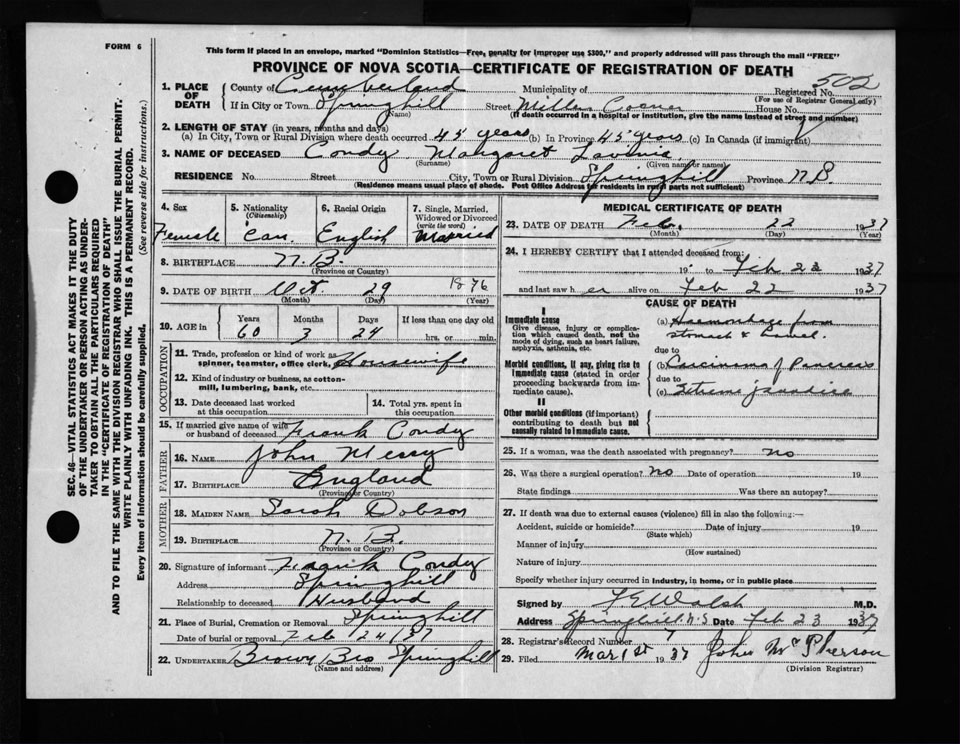 FORM 6
This form if placed in an envelope, marked "Dominion Statistics—Free, penalty for improper use $300," and properly addressed will pass through the mail "FREE"
PROVINCE OF NOVA SCOTIA—CERTIFICATE OF REGISTRATION OF DEATH
502
1. PLACE OF DEATH
County of Cumberland Municipality of Registered No.
(For use of Registrar General only)
If in City or Town Springhill Street Miller Corner House No.
(Name) (If death occurred in a hospital or institution, give the name instead of street and number)
2. LENGTH OF STAY (in years, months and days)
(a) In City, Town or Rural Division where death occurred 45 years (b) In Province 45 years (c) In Canada (if immigrant)
3. NAME OF DECEASED Condy Margaret
(Surname) (Given name or names)
RESIDENCE No. Street City, Town or Rural Division Springhill Province N.S.
(Residence means usual place of abode. Post Office Address for residents in rural parts not sufficient)
4. Sex Female
5. Nationality (Citizenship) Can.
6. Racial Origin English
7. Single, Married, Widowed or Divorced (write the word) Married
8. BIRTHPLACE N.B.
(Province or Country)
9. DATE OF BIRTH Oct. 29 1876
(Month) (Day) (Year)
10. AGE in Years Months Days If less than one day old
60 3 24 hrs. or min.
OCCUPATION
11. Trade, profession or kind of work as spinner, teamster, office clerk, Housewife
12. Kind of industry or business, as cotton-mill, lumbering, bank, etc.
13. Date deceased last worked at this occupation
14. Total yrs. spent in this occupation
15. If married give name of wife or husband of deceased Frank Condy
FATHER
16. NAME John
17. BIRTHPLACE England
(Province or Country)
MOTHER
18. MAIDEN NAME Sarah Dobson
19. BIRTHPLACE N.B.
(Province or Country)
20. Signature of informant Frank Condy
Address Springhill
Relationship to deceased Husband
21. Place of Burial, Cremation or Removal Springhill
Date of burial or removal Feb 24/37
22. UNDERTAKER Brown Bro Springhill
(Name and address)
MEDICAL CERTIFICATE OF DEATH
23. DATE OF DEATH Feb. 22 1937
(Month) (Day) (Year)
24. I HEREBY CERTIFY that I attended deceased from:
19 to Feb 22 1937
and last saw her alive on Feb 22 1937
CAUSE OF DEATH
I
Immediate cause
Give disease, injury or complication which caused death, not the mode of dying, such as heart failure, asphyxia, asthenia, etc.
(a) Haemorrhage from
stomach & bowel.
due to
Morbid conditions, if any, giving rise to immediate cause (stated in order proceeding backwards from immediate cause).
(b) Carcinoma of Pancreas
due to
(c) jaundice
II
Other morbid conditions (if important) contributing to death but not causally related to immediate cause.
25. If a woman, was the death associated with pregnancy? no
26. Was there a surgical operation? No Date of operation 19
State findings Was there an autopsy?
27. If death was due to external causes (violence) fill in also the following:—
Accident, suicide or homicide? Date of injury 19
(State which)
Manner of injury
(How sustained)
Nature of injury
Specify whether injury occurred in industry, in home, or in public place
Signed by Walsh M.D.
Address Springhill N.S. Date Feb 23 1937
28. Registrar's Record Number 7
29. Filed Mar 1st 1937 John McPherson
(Division Registrar)
SEC. 46—VITAL STATISTICS ACT MAKES IT THE DUTY
OF THE UNDERTAKER OR PERSON ACTING AS UNDER-
TAKER TO OBTAIN ALL THE PARTICULARS REQUIRED
IN THE "CERTIFICATE OF REGISTRATION OF DEATH"
AND TO FILE THE SAME WITH THE DIVISION REGISTRAR WHO SHALL ISSUE THE BURIAL PERMIT.
WRITE PLAINLY WITH UNFADING INK. THIS IS A PERMANENT RECORD.
Every item of information should be carefully supplied. (See reverse side for instructions.)